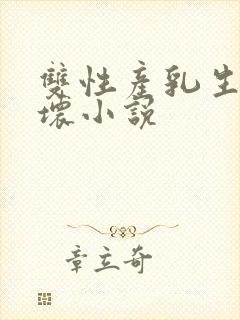 雙性產乳生
壞小說
章立奇